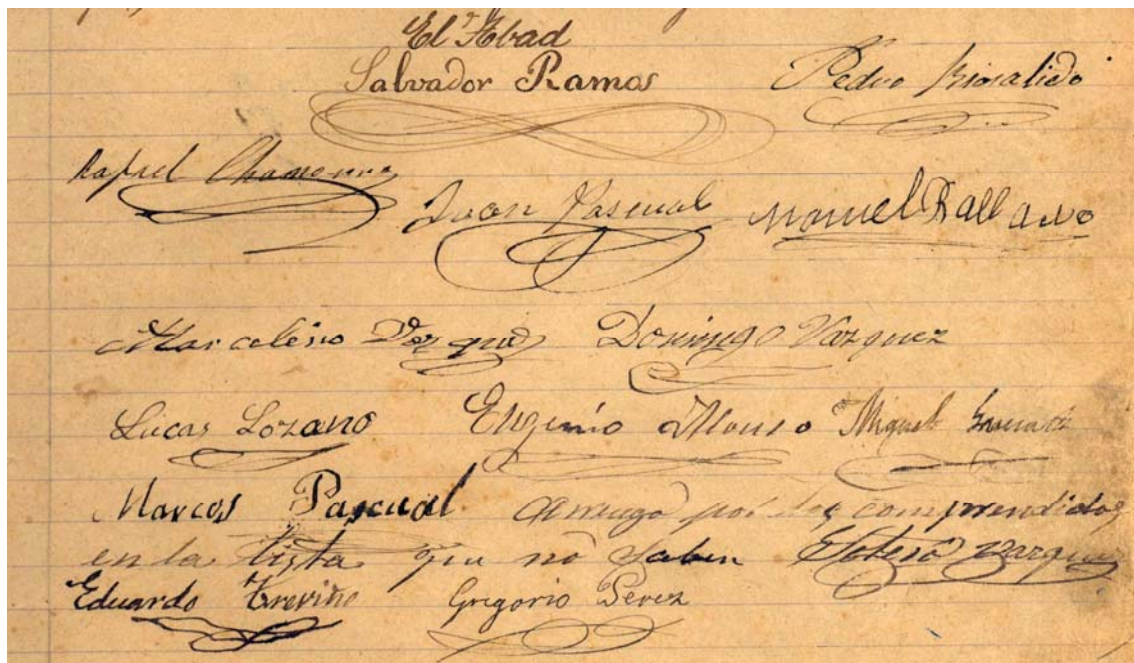 El Abad
Salvador Ramos Pedro
Rafael
Juan Pascual Manuel
Marcelino Domingo Vazquez
Lucas Lozano Eugenio Alonso Miguel
Marcos Pascual Arruego por los comprendidos
en la lista que no saben Sotero Vazquez
Eduardo Treviño Gregorio Perez